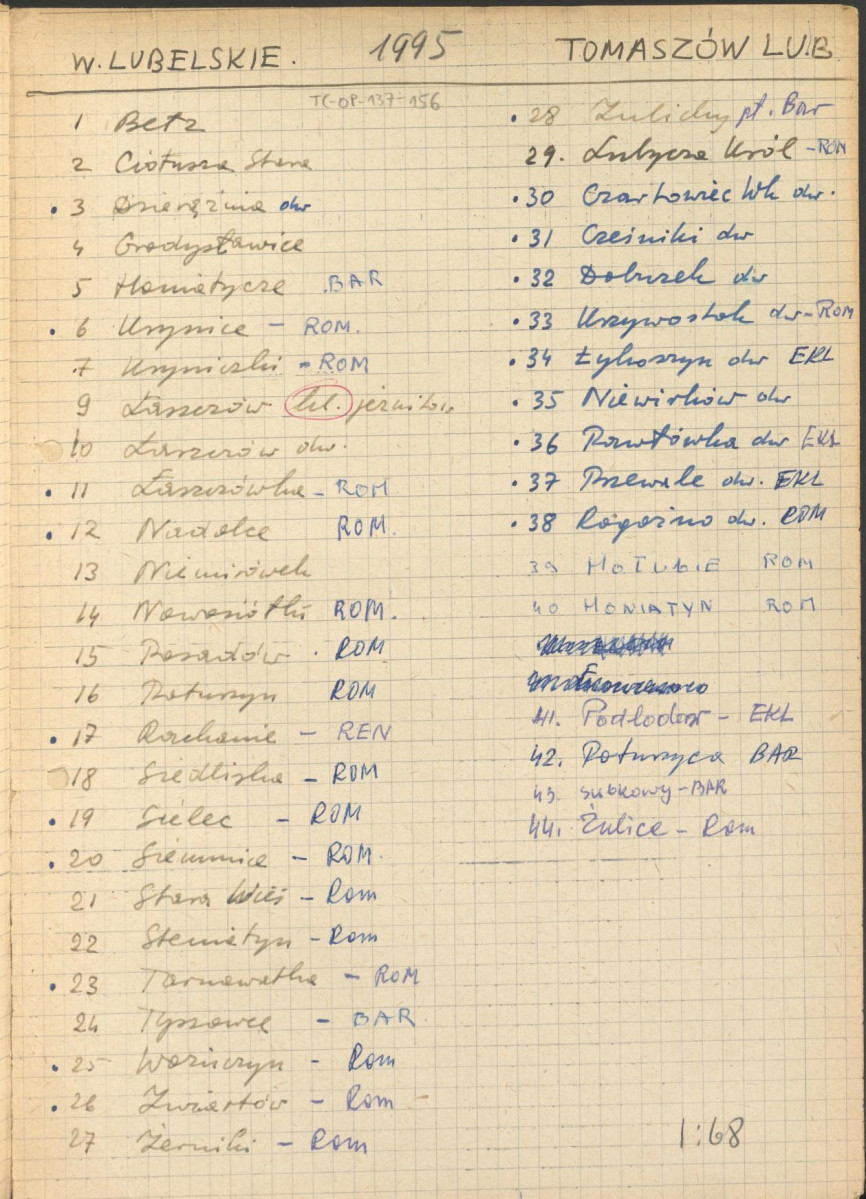 W. LUBELSKIE. 1995 TOMASZÓW LUB
TC-OP-137-156
1 Bełz
2 Ciotusza Stara
• 3 Dzierążnia dw
4 Grodysławice
5 Honiatycze BAR
• 6 Krynice - ROM.
7 Kryniczki - ROM
9 Łaszczów kl. jezuitów
10 Łaszczów dw.
• 11 Łaszczówka - ROM
• 12 Nadolce ROM.
13 Niemirówek
14 Nowosiółki ROM.
15 Posadów . ROM
16 Poturzyn ROM
• 17 Rachanie - REN
18 Siedliska - ROM
• 19 Sielec - ROM
• 20 Siemnice - ROM.
21 Stara Wieś - Rom
22 Steniatyn - Rom
• 23 Tarnawatka - ROM
24 Tyszowce - BAR
• 25 Woźuczyn - Rom
• 26 Zwiartów - Rom
27 Żerniki - Rom
• 28 Żulichy pł. Bar
29. Lubycza Król - ROM
• 30 Czartowiec Wk dw.
• 31 Cześniki dw
• 32 Dobużek dw
• 33 Krzywostok dw - ROM
• 34 Łykoszyn dw EKL
• 35 Niewirków dw
• 36 Pawłówka dw EKL
• 37 Przewale dw. EKL
• 38 Rogóźno dw. ROM
39 HOŁUBIE ROM
40 HONIATYN ROM
41. Podlodow - EKL
42. Poturzyca BAR
43. Subkowy - BAR
44. Żulice - Rom
1:68